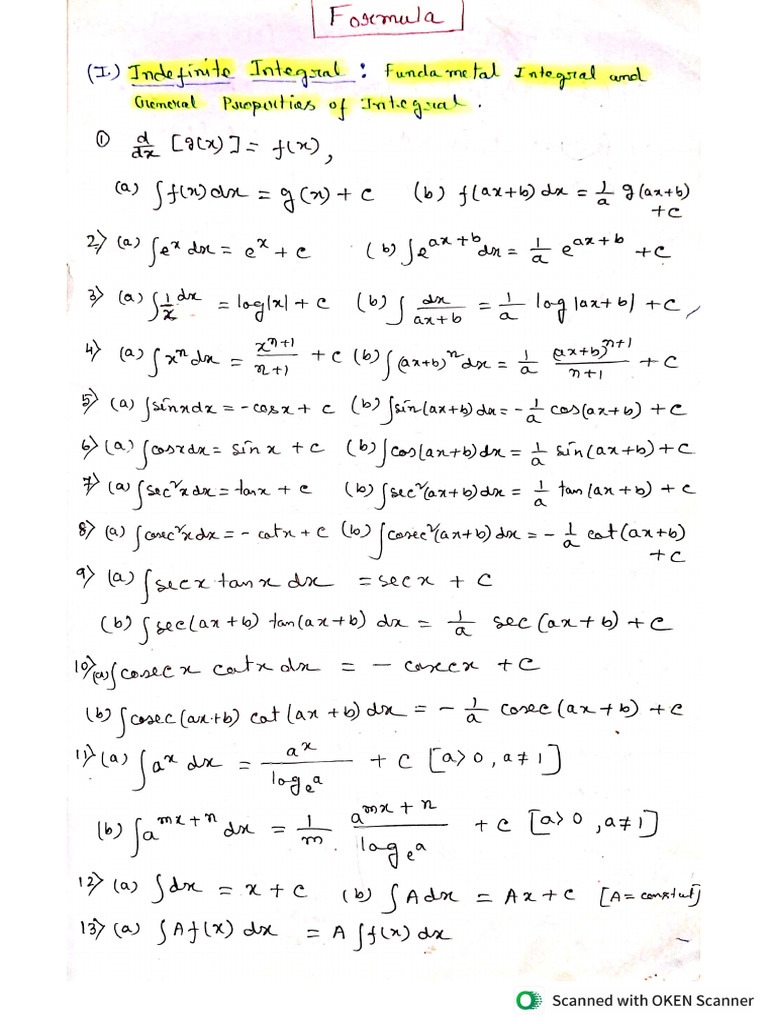 Formula
(I.) Indefinite Integral : Fundametal Integral and
General Properties of Integral.
① d/dx [g(x)] = f(x),
(a) ∫f(x)dx = g(x) + c (b) f(ax+b) dx = 1/a g(ax+b)
+c
2) (a) ∫eˣ dx = eˣ + c (b) ∫e^(ax+b) dx = 1/a e^(ax+b) + c
3) (a) ∫1/x dx = log|x| + c (b) ∫ dx/(ax+b) = 1/a log|ax+b| + c,
4) (a) ∫xⁿ dx = x^(n+1)/(n+1) + c (b) ∫(ax+b)ⁿ dx = 1/a (ax+b)^(n+1)/(n+1) + c
5) (a) ∫sinxdx = -cosx + c (b) ∫sin(ax+b) dx = -1/a cos(ax+b) + c
6) (a) ∫cosxdx = sin x + c (b) ∫cos(ax+b)dx = 1/a sin(ax+b) + c
7) (a) ∫sec²xdx = tanx + c (b) ∫sec²(ax+b)dx = 1/a tan(ax+b) + c
8) (a) ∫cosec²xdx = - cotx + c (b) ∫cosec²(ax+b)dx = - 1/a cot(ax+b)
+c
9) (a) ∫secx tanx dx = secx + c
(b) ∫sec(ax+b) tan(ax+b) dx = 1/a sec(ax+b) + c
10) (a) ∫cosecx cotx dx = - cosecx + c
(b) ∫cosec(ax+b) cot(ax+b)dx = - 1/a cosec(ax+b) + c
11) (a) ∫aˣ dx = aˣ/logₑa + c [a>0, a≠1]
(b) ∫a^(mx+n) dx = 1/m. a^(mx+n)/logₑa + c [a>0, a≠1]
12) (a) ∫dx = x + c (b) ∫Adx = Ax + c [A = constut]
13) (a) ∫Af(x) dx = A∫f(x) dx
Scanned with OKEN Scanner